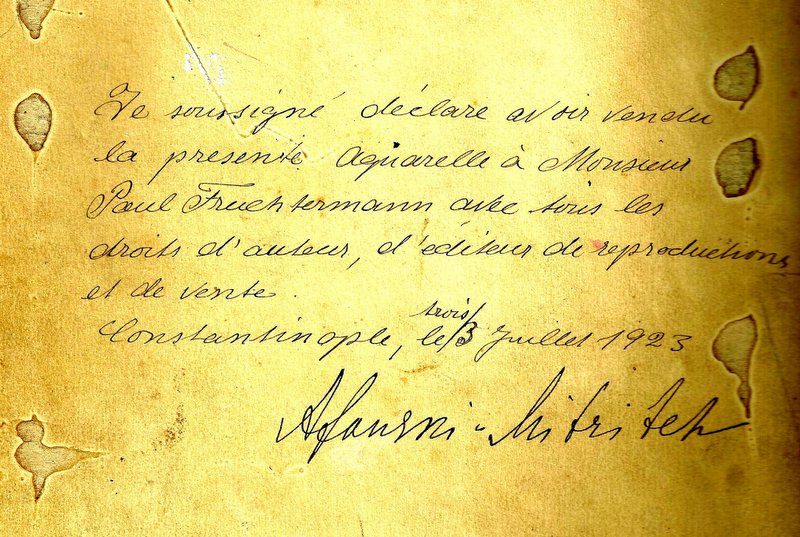 Je soussigné déclare avoir vendu
la présente Aquarelle à Monsieur
Paul Fruchtermann avec tous les
droits d'auteur, d'éditeur de reproductions
et de vente.
trois
Constantinople, le 3 Juillet 1923